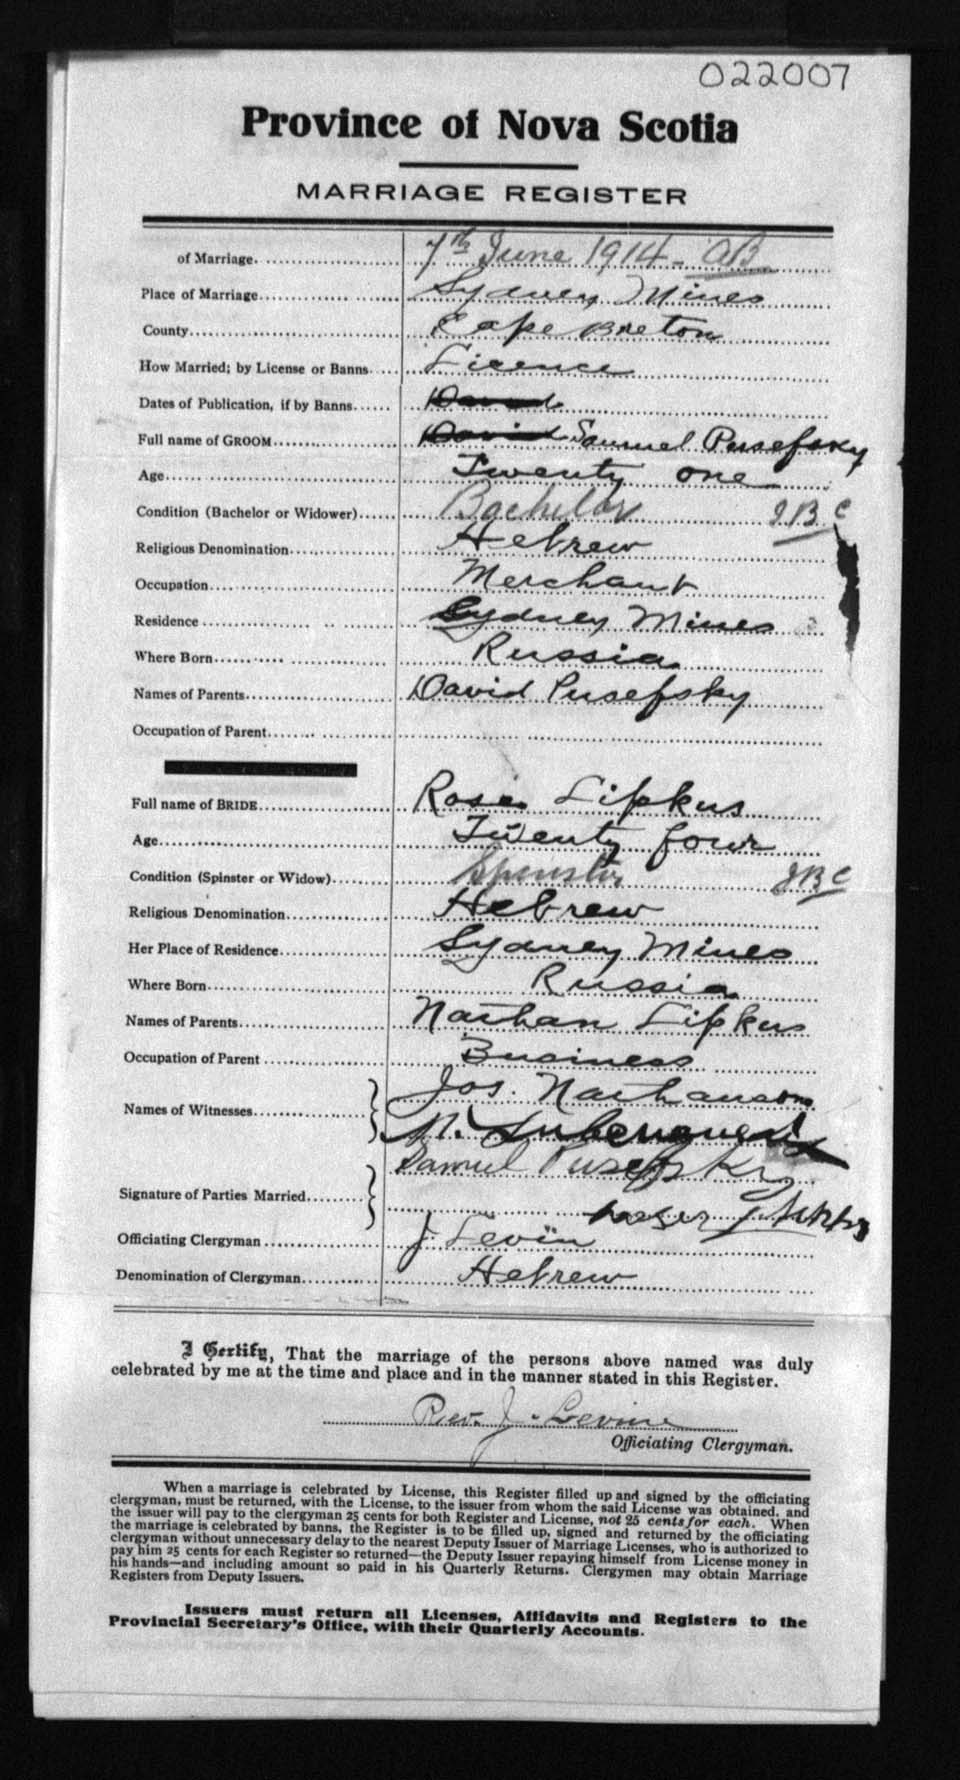 022007
Province of Nova Scotia
MARRIAGE REGISTER
of Marriage 7th June 1914 - AB
Place of Marriage Sydney Mines
County Cape Breton
How Married; by License or Banns Licence
Dates of Publication, if by Banns David
Full name of GROOM David Samuel Pusefsky
Age Twenty one
Condition (Bachelor or Widower) Bachelor JBC
Religious Denomination Hebrew
Occupation Merchant
Residence Sydney Mines
Where Born Russia
Names of Parents David Pusefsky
Occupation of Parent
Full name of BRIDE Rosie Lipkus
Age Twenty four
Condition (Spinster or Widow) Spinster JBC
Religious Denomination Hebrew
Her Place of Residence Sydney Mines
Where Born Russia
Names of Parents Nathan Lipkus
Occupation of Parent Business
Names of Witnesses Jos. Nathanson
N.
Samuel Pusefsky
Signature of Parties Married
Officiating Clergyman J Levin
Denomination of Clergyman Hebrew
I Certify, That the marriage of the persons above named was duly
celebrated by me at the time and place and in the manner stated in this Register.
Rev. J. Levine
Officiating Clergyman.
When a marriage is celebrated by License, this Register filled up and signed by the officiating
clergyman, must be returned, with the License, to the issuer from whom the said License was obtained, and
the issuer will pay to the clergyman 25 cents for both Register and License, not 25 cents for each. When
the marriage is celebrated by banns, the Register is to be filled up, signed and returned by the officiating
clergyman without unnecessary delay to the nearest Deputy Issuer of Marriage Licenses, who is authorized to
pay him 25 cents for each Register so returned—the Deputy Issuer repaying himself from License money in
his hands—and including amount so paid in his Quarterly Returns. Clergymen may obtain Marriage
Registers from Deputy Issuers.
Issuers must return all Licenses, Affidavits and Registers to the
Provincial Secretary's Office, with their Quarterly Accounts.